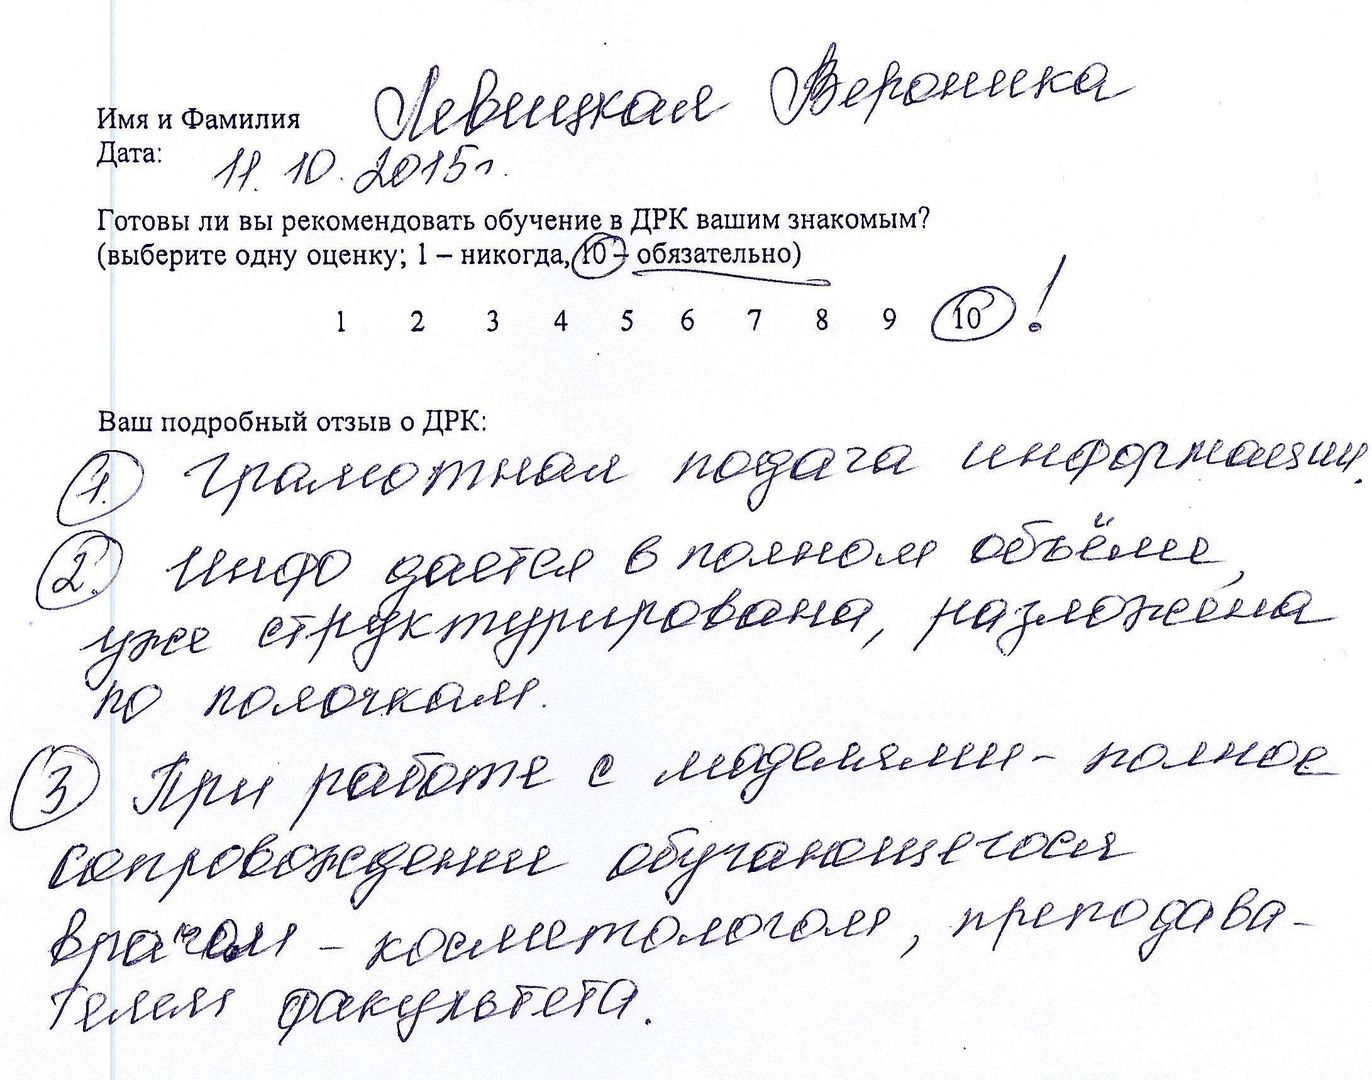 Имя и Фамилия Левицкая Вероника
Дата: 11.10.2015г.
Готовы ли вы рекомендовать обучение в ДРК вашим знакомым?
(выберите одну оценку; 1 – никогда, 10 – обязательно)
1 2 3 4 5 6 7 8 9 10 !
Ваш подробный отзыв о ДРК:
1. Грамотная подача информации.
2. Инфо дается в полном объёме,
уже структурирована, разложена
по полочкам.
3 При работе с моделями - полное
сопровождении обучающегося
врачом - косметологом, преподава-
телем факультета.